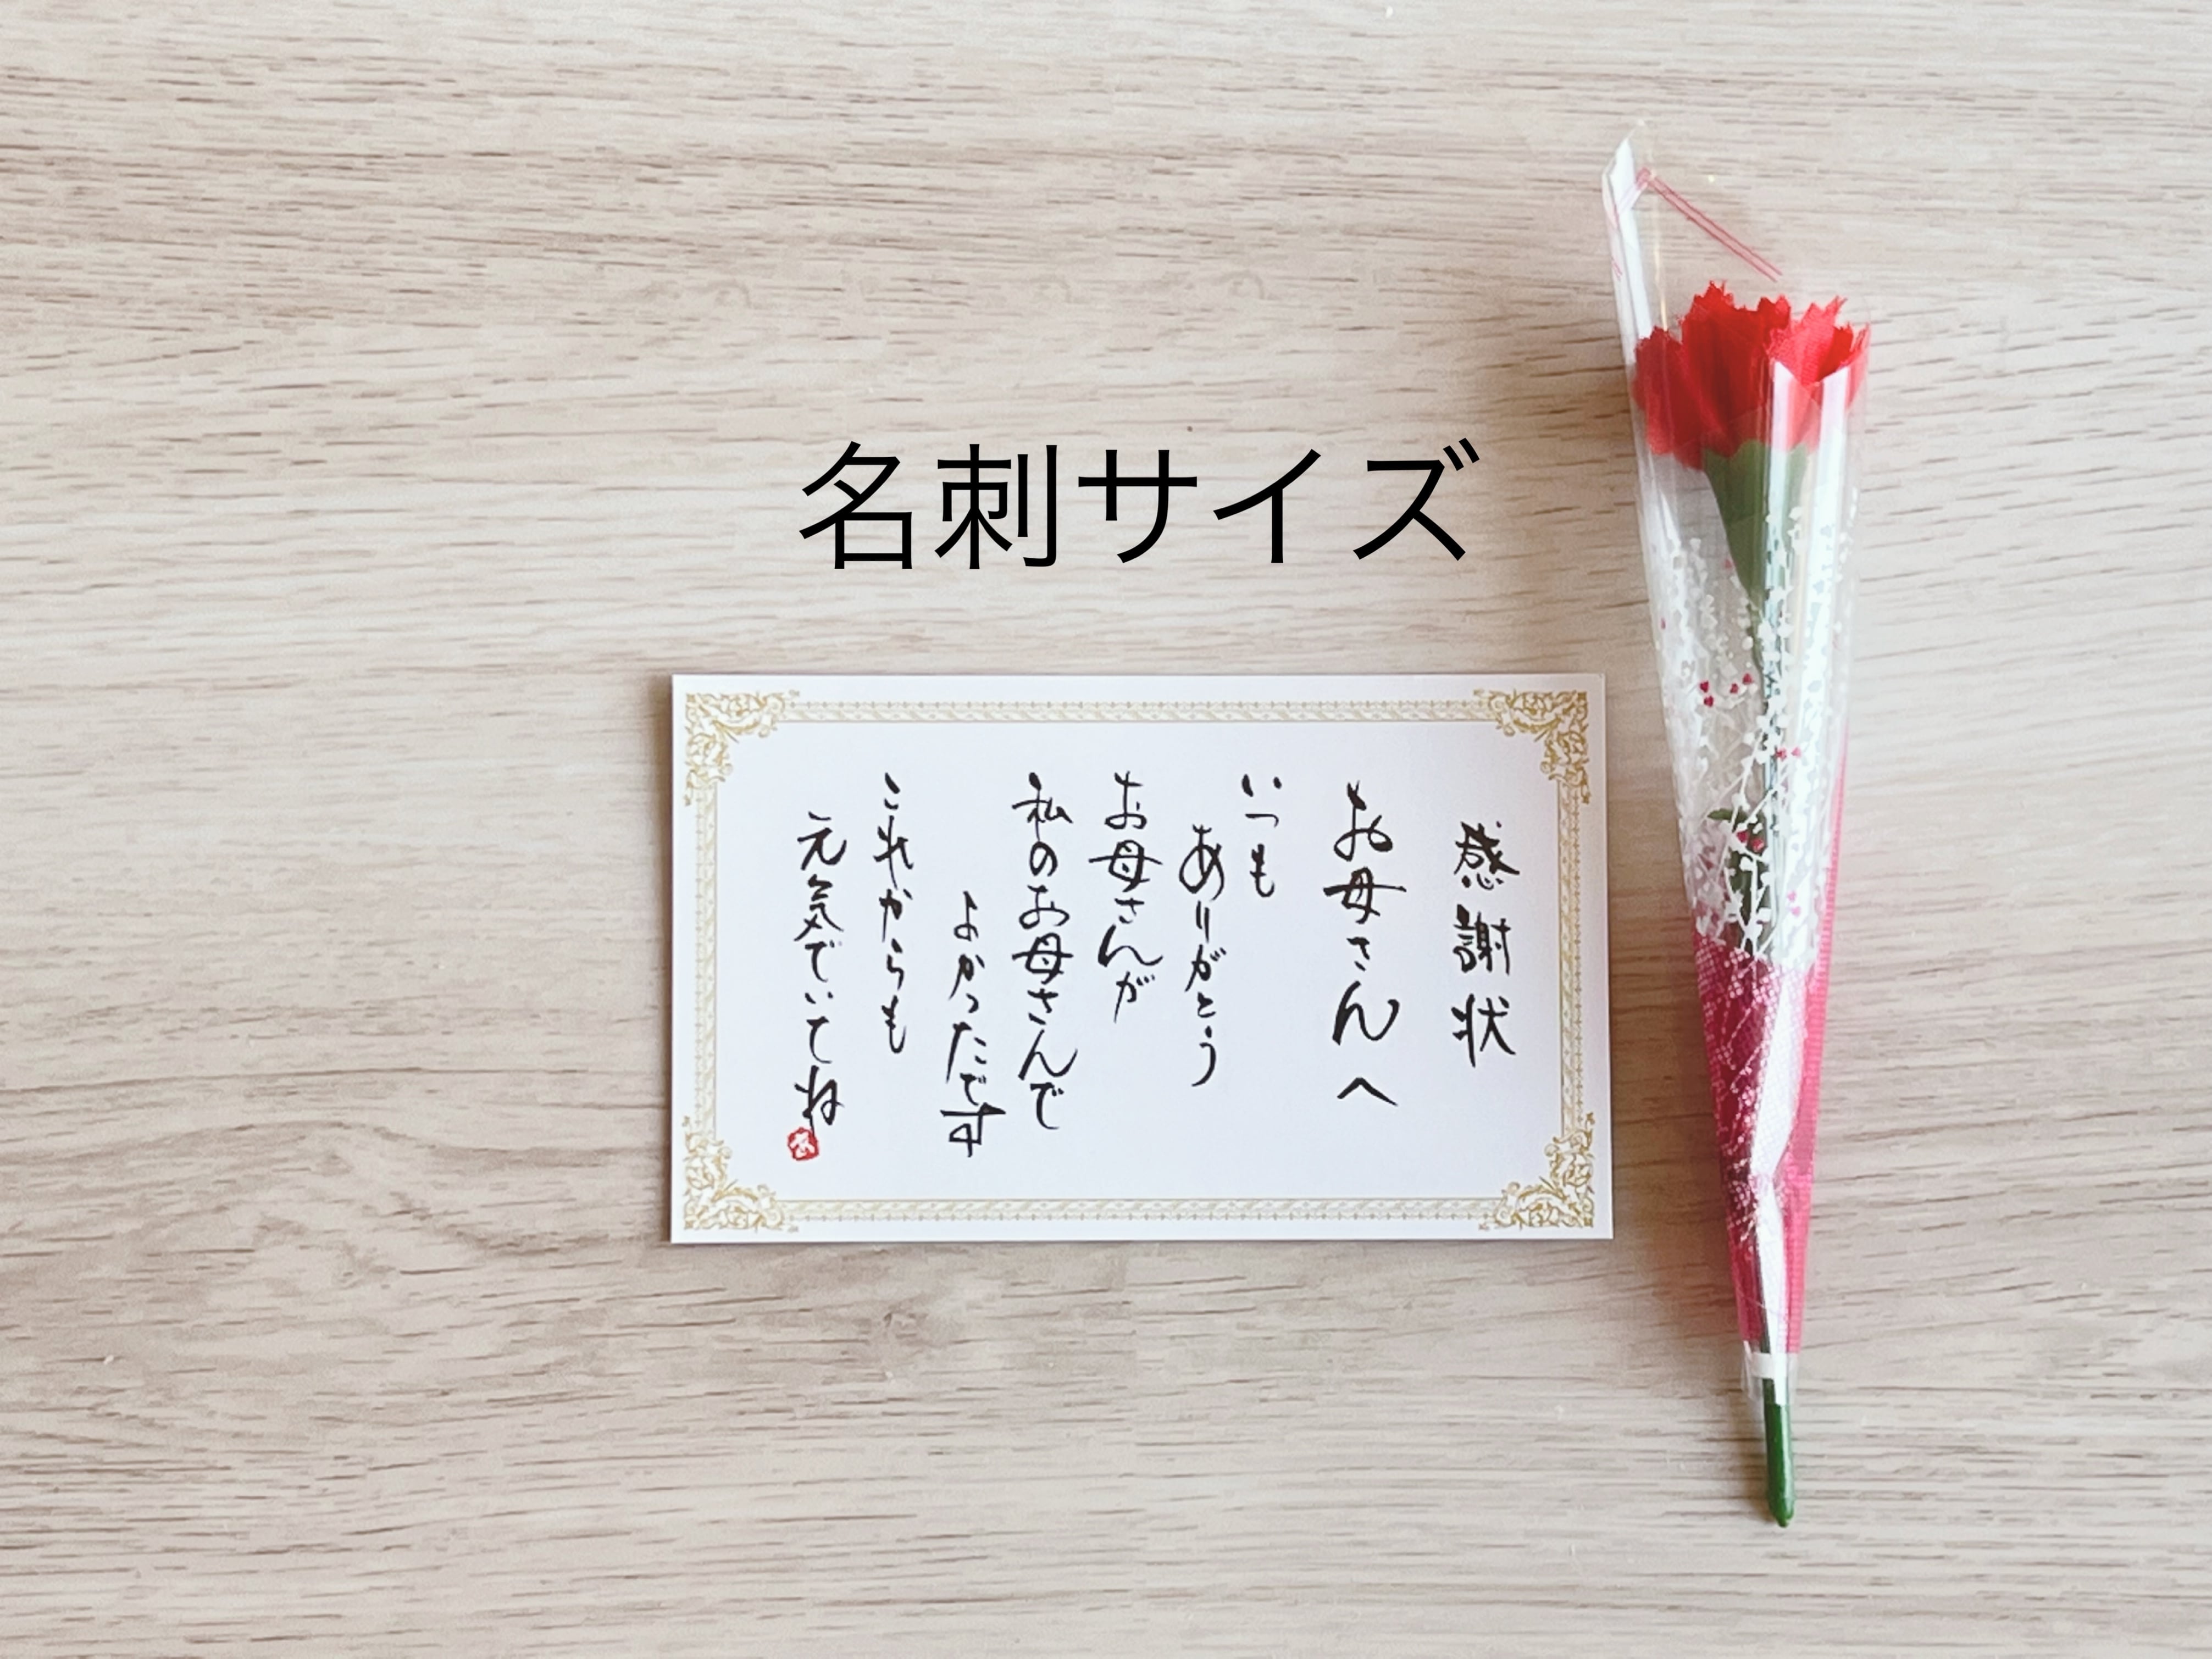 名刺サイズ
感謝状
お母さんへ
いつも
ありがとう
お母さんが
私のお母さんで
よかったです
これからも
元気でいてね